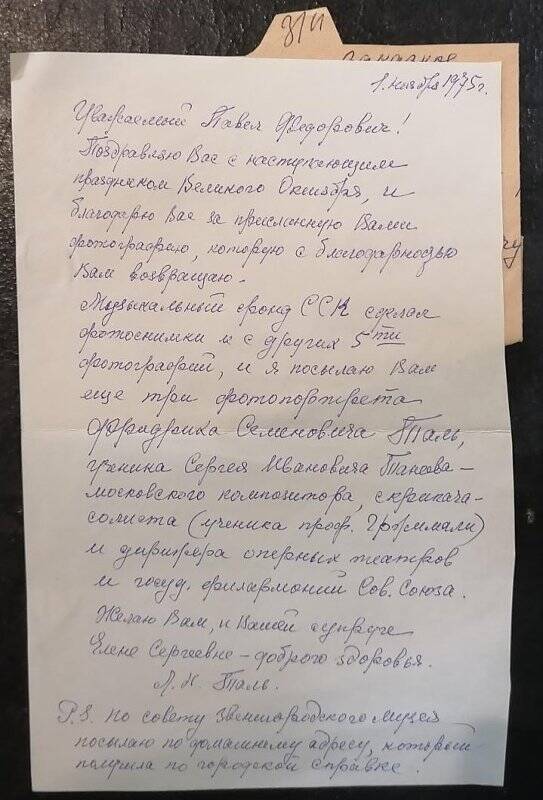 З/II
1. ноября 1975г.
Уважаемый Павел Федорович!
Поздравляю Вас с наступающим
праздником Великого Октября, и
благодарю Вас за присланную Вами
фотографию, которую с благодарностью
Вам возвращаю.
Музыкальный фонд ССК сделал
фотоснимки и с других 5ти
фотографий, и я посылаю Вам
еще три фотопортрета
Фридриха Семеновича Таль,
ученика Сергея Ивановича Танеева –
московского композитора, скрипача-
солиста (ученика проф. Гржимали)
и дирижера оперных театров
и госуд. филармоний Сов. Союза.
Желаю Вам, и Вашей супруге
Елене Сергеевне – доброго здоровья.
Л. Н. Таль.
P.S. по совету Звенигородского музея
посылаю по домашнему адресу, который
получила по городской справке.